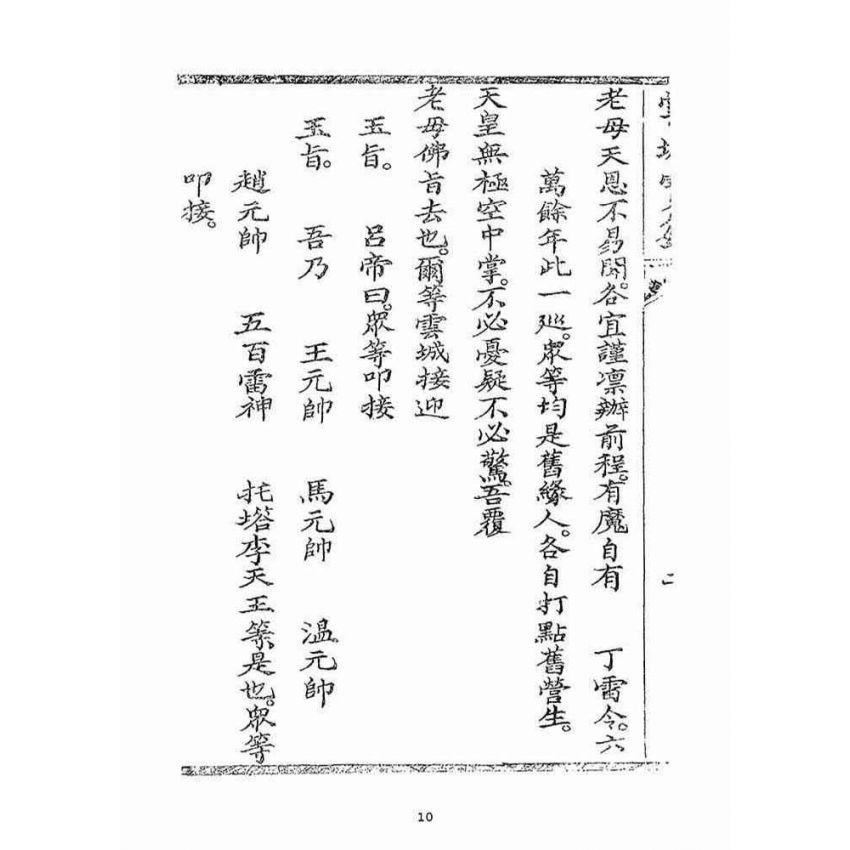 二
老母天恩不易開。各宜謹凛辦前程。有魔自有　丁雷令。六
萬餘年此一巡。眾等均是舊緣人。各自打點舊營生。
天皇無極空中掌。不必憂疑不必驚。吾覆
老母佛旨去也。爾等雲城接迎
玉旨。　呂帝曰。眾等叩接
玉旨。　吾乃　王元帥　馬元帥　溫元帥
趙元帥　五百雷神　托塔李天王等是也。眾等
叩接。
10